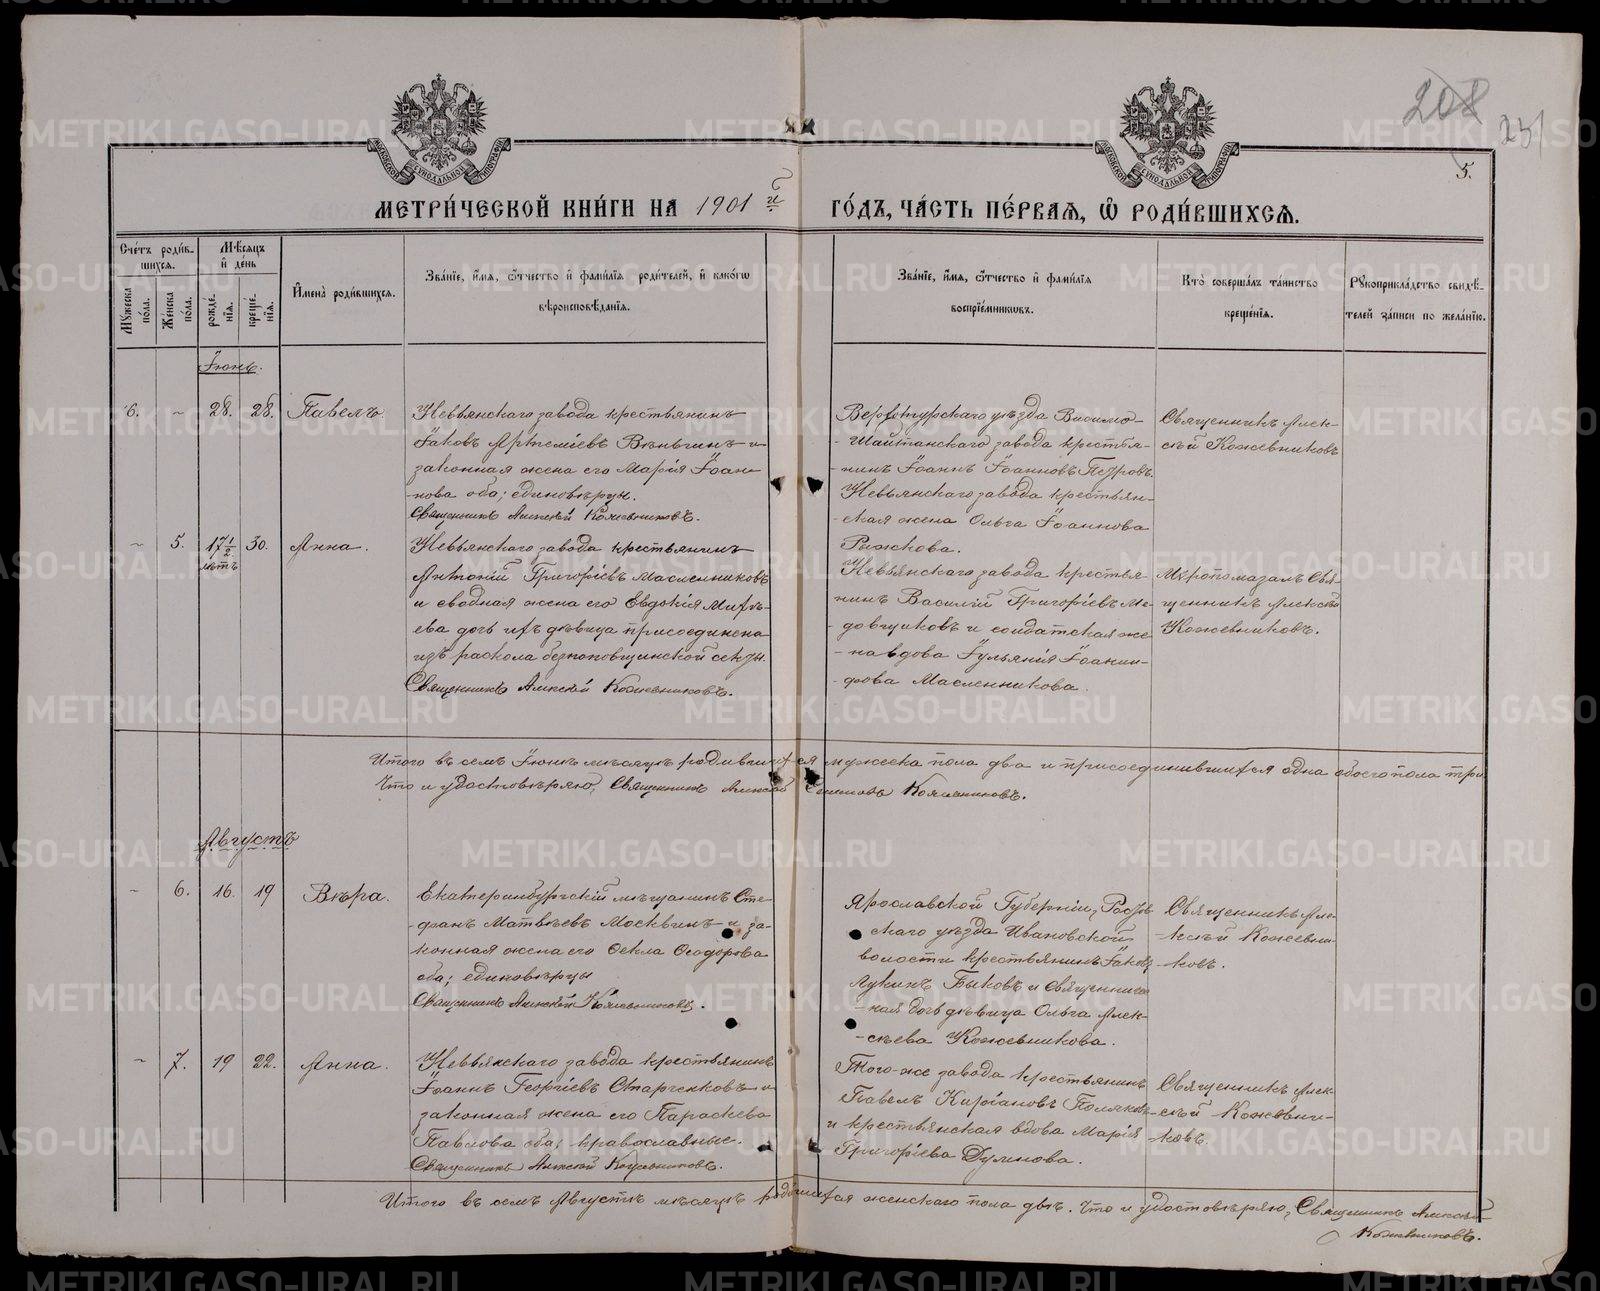 208
231
5.
МЕТРИ́ЧЕСКОЙ КНИ́ГИ НА 1901й ГО́ДЪ, ЧА́СТЬ ПЕ́РВАѦ, Ѡ҆ РОДИ́ВШИХСѦ.
Сче́тъ роди́в-
шихся.
Мꙋжеска по́ла.
Же́нска по́ла.
Мѣ́сяцъ
и҆ де́нь
рожде́-
нїя.
креще́-
нїя.
И҆мена̀ роди́вшихся.
Зва́нїе, и҆́мя, ѻ҆́тчество и҆ фами́лїя роди́телей, и҆ како́гѡ
вѣроисповѣ́данїя.
Зва́нїе, и҆́мя, ѻ҆́тчество и҆ фами́лїя
воспрїе́мникѡвъ.
Кто̀ соверша́лъ та́инство
креще́нїя.
Рꙋкоприкла́дство свидѣ́-
телей за́писи по жела́нїю.
Іюнь.
6.
~
28.
28.
Павелъ.
Невьянскаго завода крестьянинъ
Іаковъ Артеміевъ Вяньгинъ и
законная жена его Марія Іоан-
нова оба; единовѣрцы.
Священникъ Алексѣй Кожевниковъ.
Верхотурскаго уѣзда Висимо-
Шайтанскаго завода крестья-
нинъ Іоаннъ Іоанновъ Петровъ.
Невьянскаго завода крестьян-
ская жена Ольга Іоаннова
Рыжкова.
Священникъ Алек-
сѣй Кожевниковъ
~
5.
17 1/2
лѣтъ
30.
Анна.
Невьянскаго завода крестьянинъ
Антоній Григоріевъ Масленниковъ
и сводная жена его Евдокія Матѳѣ-
ева дочь ихъ дѣвица присоединена
изъ раскола безпоповщинской секты.
Священникъ Алексѣй Кожевниковъ.
Невьянскаго завода крестья-
нинъ Василій Григоріевъ Ме-
довщиковъ и солдатская же-
на вдова Іульянія
Масленникова.
Мѵропомазалъ Свя-
щенникъ Алексѣй
Кожевниковъ.
Итого въ семъ Іюнѣ мѣсяцѣ родившихся мужеска пола два и присоединившихся одна обоего пола три
Что и удостовѣряю, Священникъ Алексѣй Кожевниковъ.
Августъ
~
6.
16.
19
Вѣра.
Екатеринбургскій мѣщанинъ Сте-
фанъ Матвѣевъ Москвинъ и за-
конная жена его Ѳекла Ѳеодорова
оба; единовѣрцы
Священникъ Алексѣй Кожевниковъ.
Ярославской Губерніи, Ростов-
скаго уѣзда Ивановской
волости крестьянинъ Іаковъ
Лукинъ Быковъ и священниче-
ская дочь дѣвица Ольга Алек-
сѣева Кожевникова.
Священникъ Але-
ксѣй Кожевни-
ковъ.
~
7.
19
22.
Анна.
Невьянскаго завода крестьянинъ
Іоаннъ Георгіевъ Старченковъ и
законная жена его Параскева
Павлова оба; православные.
Священникъ Алексѣй Кожевниковъ.
Того-же завода крестьянинъ
Павелъ Киріановъ Поляковъ
и крестьянская вдова Марія
Григоріева Дулинова.
Священникъ Алек-
сѣй Кожевни-
ковъ.
Итого въ семъ Августѣ мѣсяцѣ родившихся женскаго пола двѣ. Что и удостовѣряю, Священникъ Алексѣй
Кожевниковъ.
METRIKI.GASO-URAL.RU